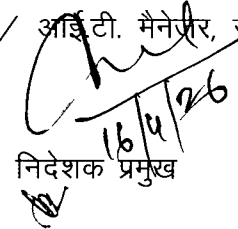 आई.टी. मैनेजर,
16/4/26
निदेशक प्रमुख